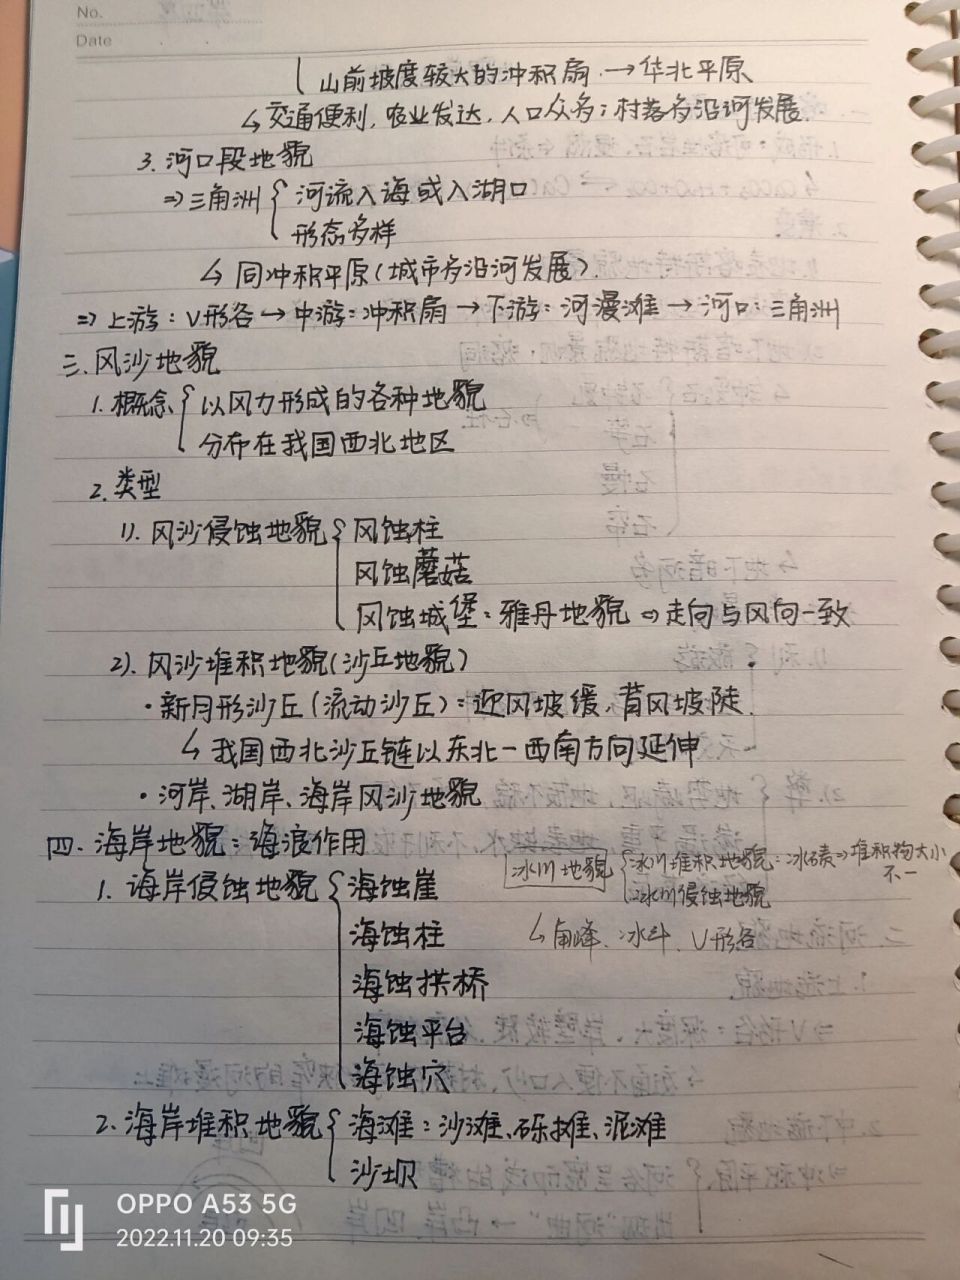 No.
Date
山前坡度较大的冲积扇 → 华北平原
↳ 交通便利,农业发达,人口众多;村落多沿河发展.
3. 河口段地貌
⇒ 三角洲 { 河流入海或入湖口
形态多样
↳ 同冲积平原(城市多沿河发展)
⇒ 上游:V形谷 → 中游:冲积扇 → 下游:河漫滩 → 河口:三角洲
三.风沙地貌
1. 概念 { 以风力形成的各种地貌
分布在我国西北地区
2. 类型
1). 风沙侵蚀地貌 { 风蚀柱
风蚀蘑菇
风蚀城堡:雅丹地貌 ⇒ 走向与风向一致
2). 风沙堆积地貌(沙丘地貌)
·新月形沙丘(流动沙丘):迎风坡缓、背风坡陡.
↳ 我国西北沙丘链以东北—西南方向延伸
·河岸、湖岸、海岸风沙地貌
四. 海岸地貌:海浪作用
冰川地貌 { 冰川堆积地貌:冰碛⇒堆积物大小不一
冰川侵蚀地貌
↳ 角峰、冰斗、U形谷
1. 海岸侵蚀地貌 { 海蚀崖
海蚀柱
海蚀拱桥
海蚀平台
海蚀穴
2. 海岸堆积地貌 { 海滩:沙滩、砾滩、泥滩
沙坝
OPPO A53 5G
2022.11.20 09:35